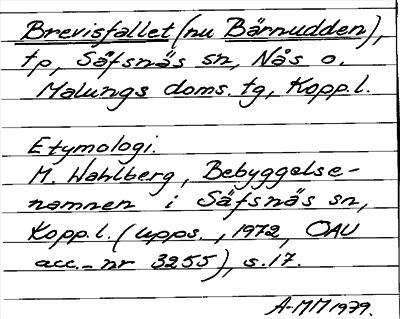 Brevisfallet (nu Bärnudden),
tp, Säfsnäs sn, Nås o.
Malungs doms. tg, Kopp. l.
Etymologi.
M. Wahlberg, Bebyggelse-
namnen i Säfsnäs sn,
Kopp. l. (upps., 1972, OAU
acc.-nr 3255), s. 17.
A-MM 1979.